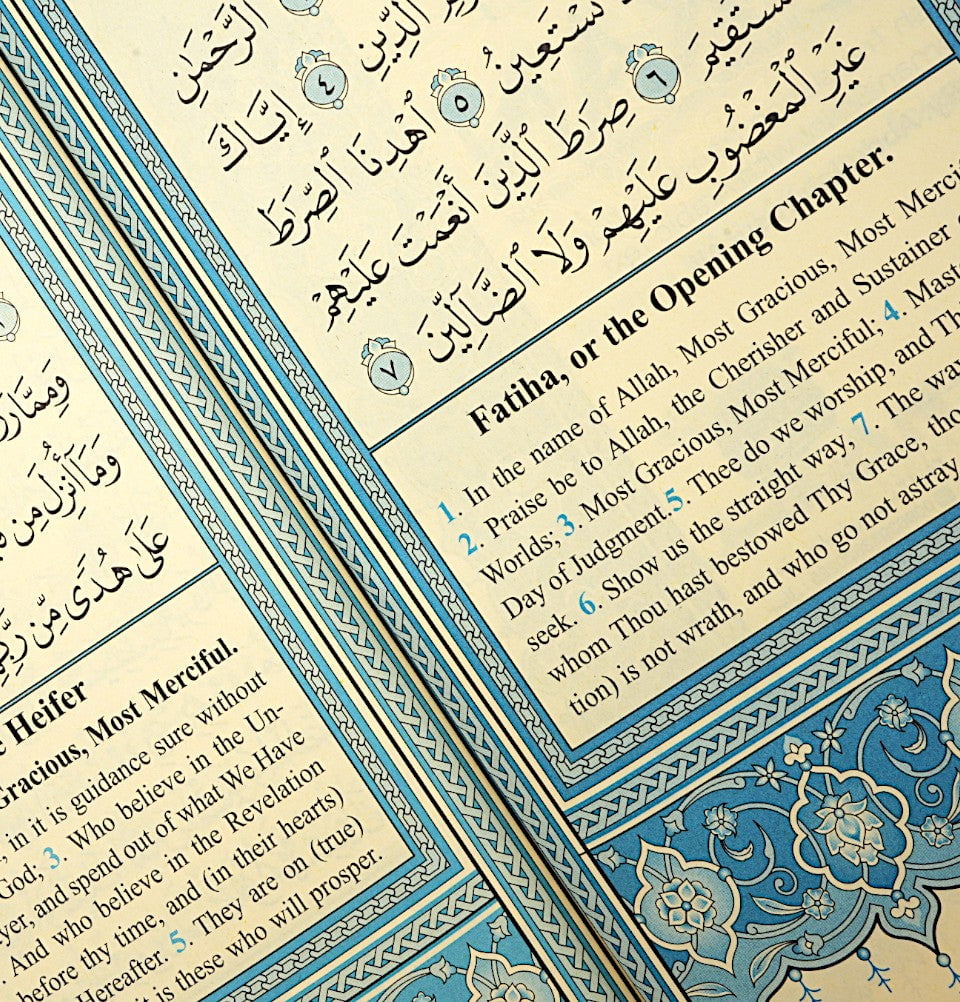 الرَّحْمَٰنِ
الدِّينِ ٤ إِيَّاكَ
نَسْتَعِينُ ٥ ٱهْدِنَا ٱلصِّرَٰطَ
٦ صِرَٰطَ ٱلَّذِينَ أَنْعَمْتَ عَلَيْهِمْ
غَيْرِ ٱلْمَغْضُوبِ عَلَيْهِمْ وَلَا ٱلضَّآلِّينَ ٧
Fatiha, or the Opening Chapter.
1. In the name of Allah, Most Gracious, Most
2. Praise be to Allah, the Cherisher and Sustainer
Worlds; 3. Most Gracious, Most Merciful; 4.
Day of Judgment.5. Thee do we worship, and
seek. 6. Show us the straight way, 7. The
whom Thou hast bestowed Thy Grace,
tion) is not wrath, and who go not astray
وَمَآ أُنزِلَ مِن
عَلَىٰ هُدًى مِّن
Heifer
Gracious, Most Merciful.
, in it is guidance sure without
God; 3. Who believe in the Un-
and spend out of what We Have
And who believe in the Revelation
before thy time, and (in their hearts)
Hereafter. 5. They are on (true)
it is these who will prosper.